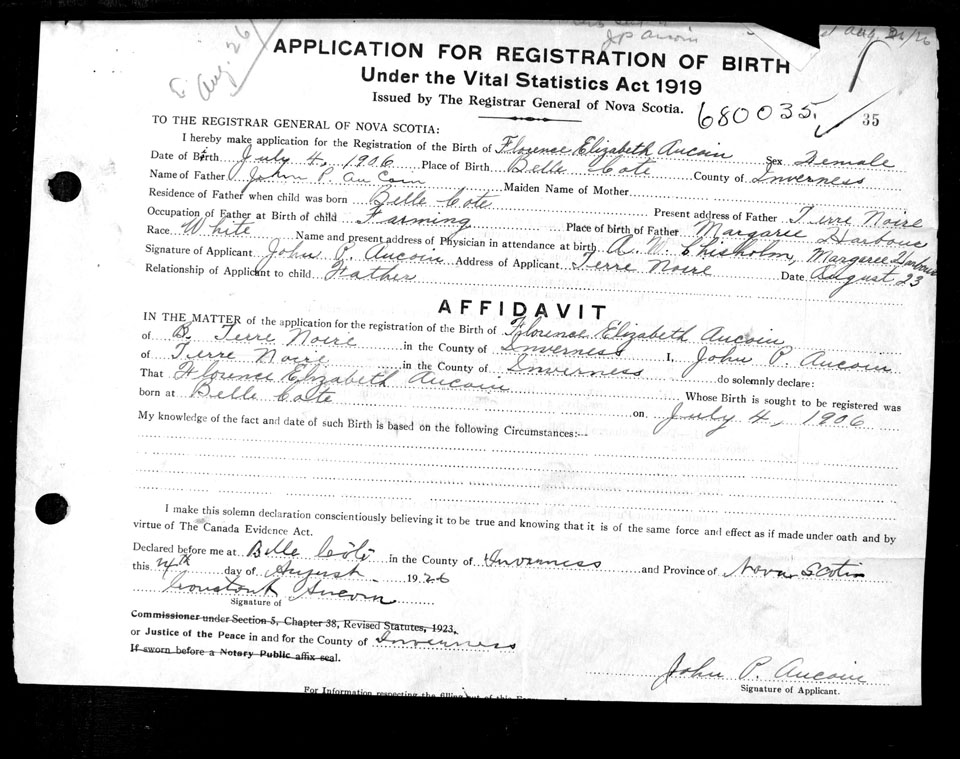 Aug. 26
J P Aucoin
Aug
APPLICATION FOR REGISTRATION OF BIRTH
Under the Vital Statistics Act 1919
Issued by The Registrar General of Nova Scotia.
680035
35
TO THE REGISTRAR GENERAL OF NOVA SCOTIA:
I hereby make application for the Registration of the Birth of Florence Elizabeth Aucoin Sex Female
Date of Birth July 4, 1906 Place of Birth Belle Cote County of Inverness
Name of Father John P. AuCoin Maiden Name of Mother
Residence of Father when child was born Belle Cote Present address of Father Terre Noire
Occupation of Father at Birth of child Farming Place of birth of Father Margaree Harbour
Race White Name and present address of Physician in attendance at birth A. W. Chisholm, Margaree Harbour
Signature of Applicant John P. Aucoin Address of Applicant Terre Noire Date August 23
Relationship of Applicant to child Father
AFFIDAVIT
IN THE MATTER of the application for the registration of the Birth of Florence Elizabeth Aucoin
of B. Terre Noire in the County of Inverness I, John P. Aucoin
of Terre Noire in the County of Inverness do solemnly declare:
That Florence Elizabeth Aucoin Whose Birth is sought to be registered was
born at Belle Cote on July 4, 1906
My knowledge of the fact and date of such Birth is based on the following Circumstances:--
I make this solemn declaration conscientiously believing it to be true and knowing that it is of the same force and effect as if made under oath and by
virtue of The Canada Evidence Act.
Declared before me at Belle Côté in the County of Inverness and Province of Nova Scotia
this 24th day of August 1926
Constant Aucoin
Signature of
Commissioner under Section 5, Chapter 38, Revised Statutes, 1923,
or Justice of the Peace in and for the County of Inverness
If sworn before a Notary Public affix seal.
John P. Aucoin
Signature of Applicant.
For Information respecting the filling out of this